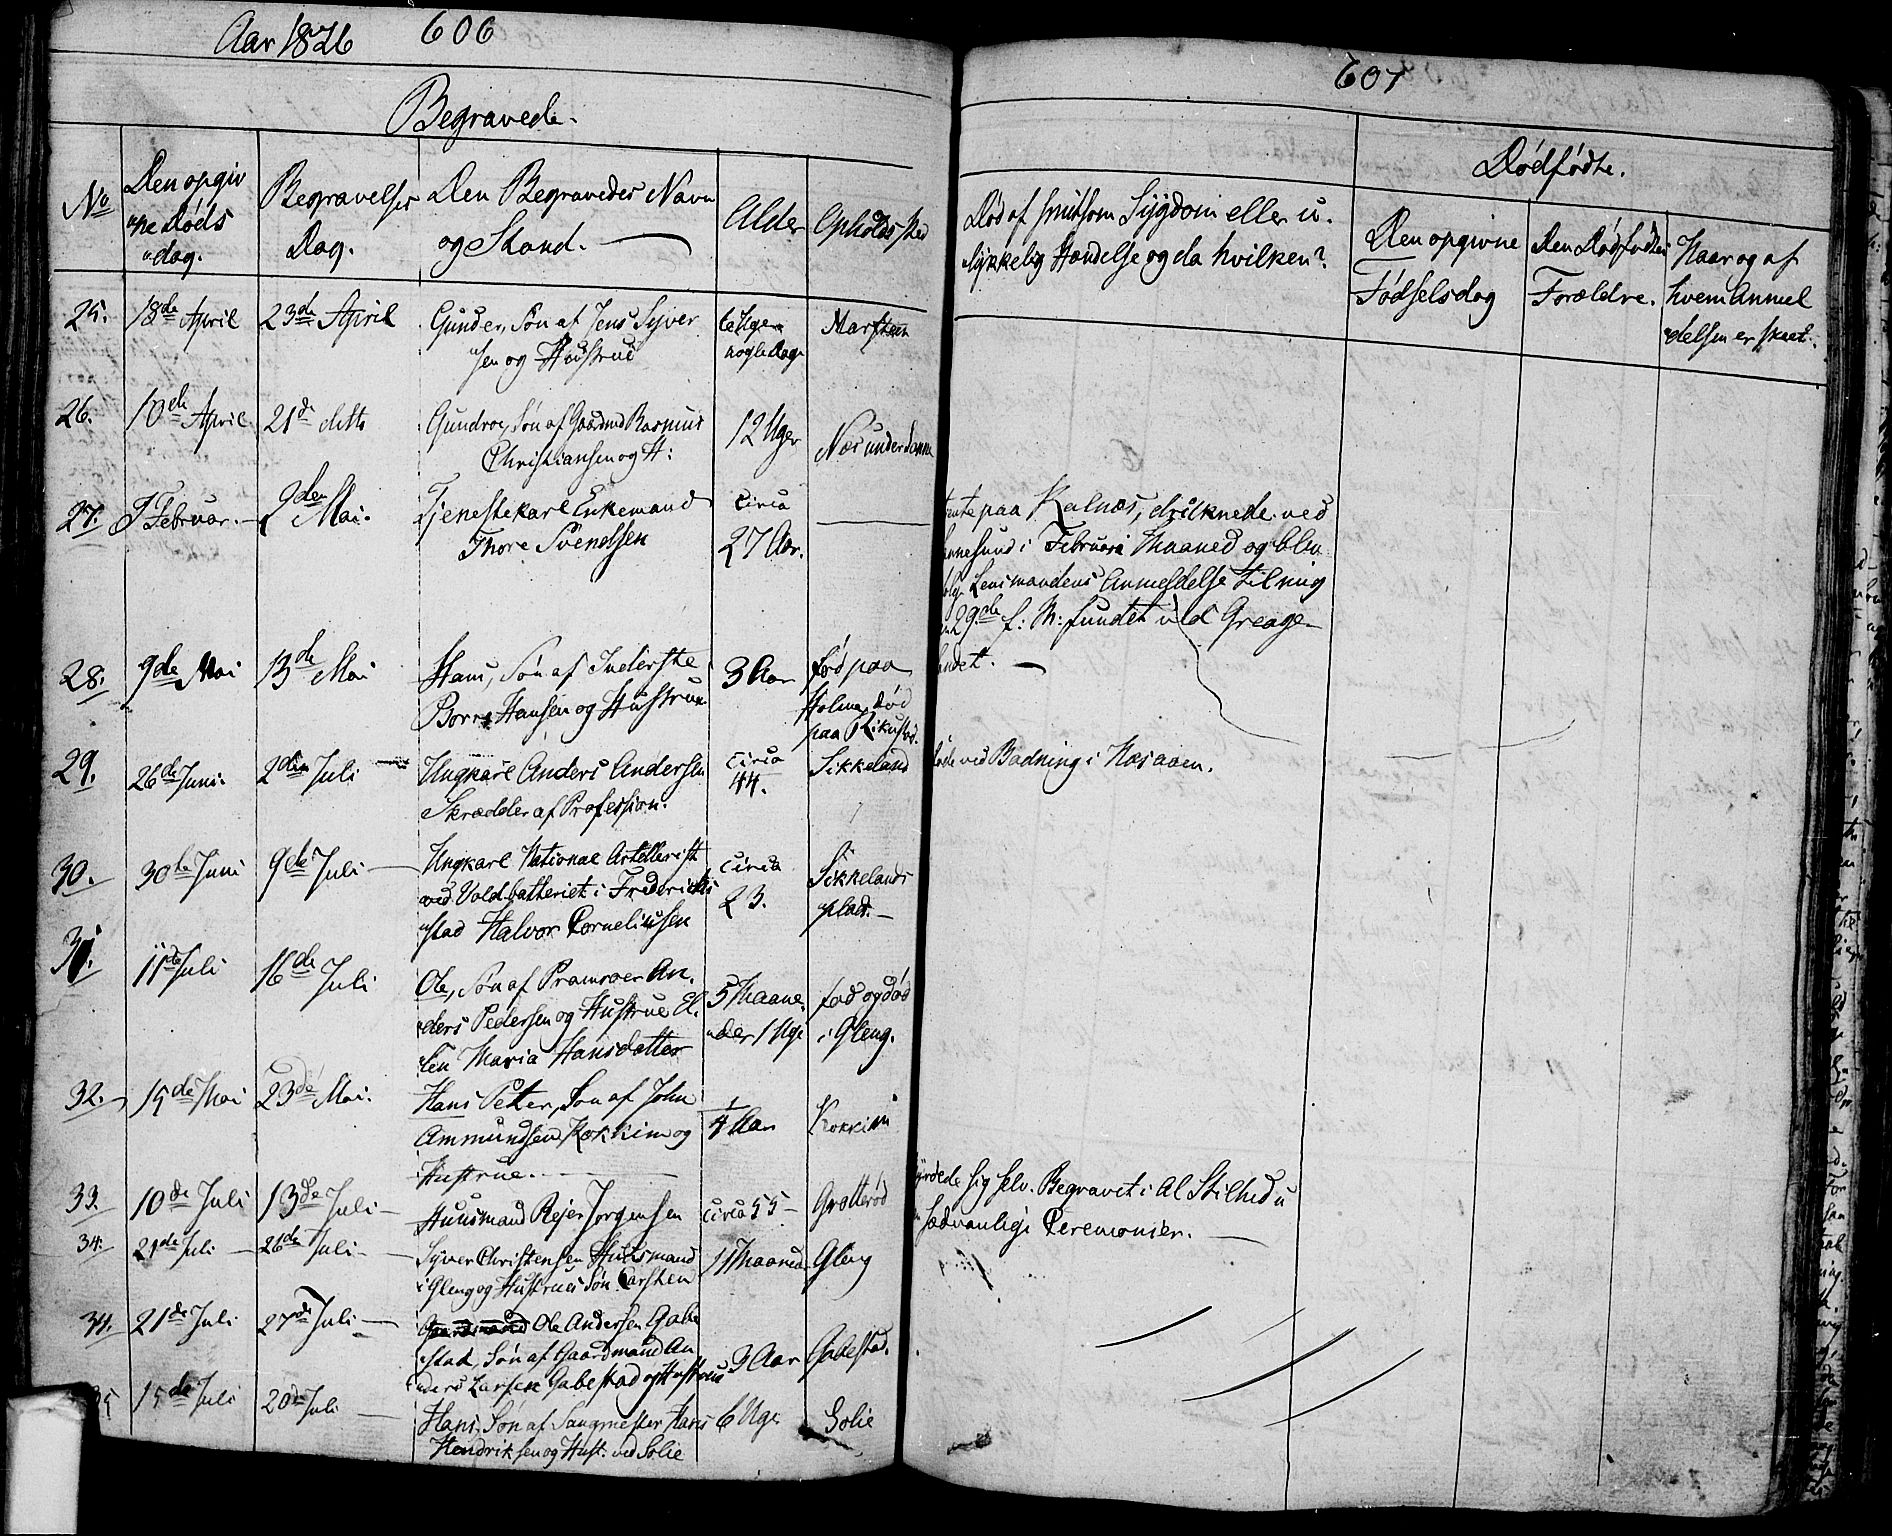 Aar 1826 606
Begravede.
No
Den opgiv
ne Døds
dag.
Begravelses
Dag.
Den Begravedes Navn
og Stand.
Alder
Opholdssted
25. 18de April 23de April Gunder, Søn af Jens Syver
sen og Hustrue
Uger
nogle Dage
26. 10de April 21de ditto
Søn af Gaardmd Rasmus
Christiansen og H:
12 Uger
Næs under
27. Februar. 9den Mai.
Tjenestekarl Enkemand
Thore Svendsen
circa
27 Aar.
28. 9de Mai 13de Mai
Hans, Søn af Inderste
Borre Hansen og Hustrue
3 Aar
fød paa
død
paa
29. 26de Juni 2den Juli
Ungkarl Anders Andersen
Skrædder af Profession.
circa
44.
Sikkeland
30. 30de Juni 9de Juli
Ungkarl National Artellerist
ved Voldbatteriet i Fredericks
stad Halvor Corneliusen
circa
23.
Sikkelands
plads.
31. 11de Juli 16de Juli
Ole, Søn af Pramroer An
ders Pedersen og Hustrue El
len Maria Hansdatter
5 Maane
der 1 Uge
fød og død
i Gleng.
32. 15de Mai 23de Mai.
Hans Peter, Søn af John
Ammundsen Kokkim og
Hustrue.
1/4 Aar
Kokkim
33. 10de Juli 13de Juli
Huusmand Rejer Jørgensen
circa 55
Grotterød
34. 21de Juli 26de Juli
Syver Christensen Huusmand
i Gleng og Hustrues Søn Carsten
11 Maaned
Gleng
34. 21de Juli 27de Juli
Gaardmand Ole Andersen Gabe
stad, Søn af Gaardmand An
ders Larsen Gabestad og Hustrue
3 Aar
Gabestad.
35 15de Juli 20de Juli
Hans, Søn af Saugmester Hans
Hendriksen og Hust: ved Solie
6 Uge
Solie
607
Død af smitsom Sygdom eller u
lykkelig Hændelse og da hvilken?
Dødfødte.
Den opgivne
Fødselsdag
Den Dødfødtes
Forældre.
Naar og af
hvem Anmel
delsen er skeet.
paa Kalnæs, druknede ved
i Februari Maaned og blev
Lensmandens Anmeldelse til mig
29de f: M: fundet ved Greage
landet.
ved Badning i Næsaaen.
sig selv. Begravet i al Stilhed u
Sædvanlige Ceremonier.